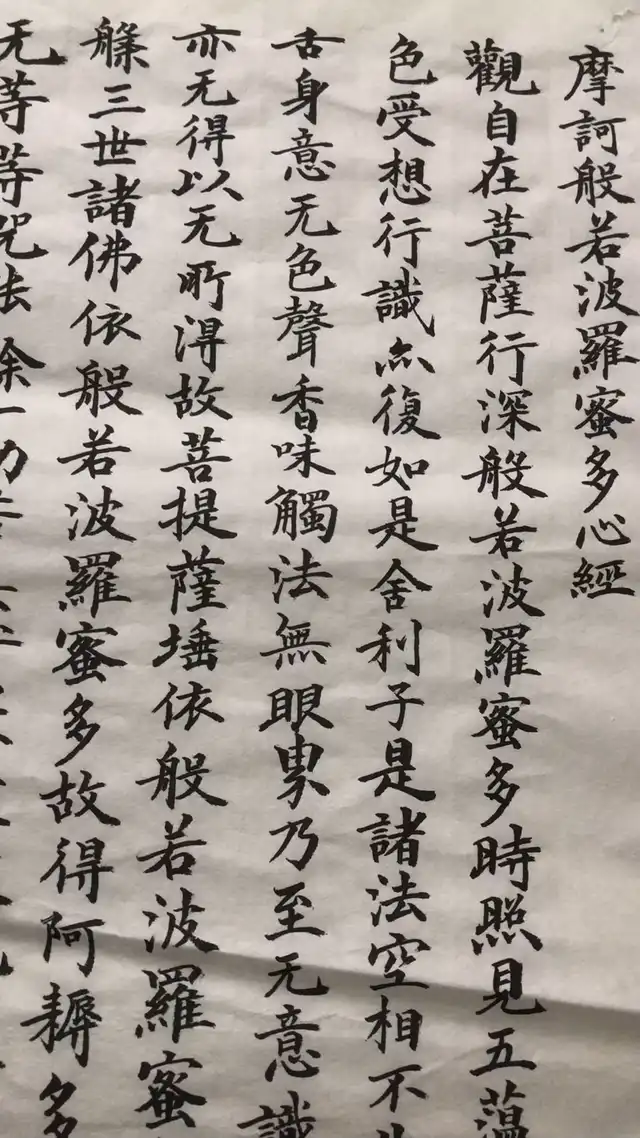 摩訶般若波羅蜜多心經
觀自在菩薩行深般若波羅蜜多時照見五蕰
色受想行識亦復如是舍利子是諸法空相不生
舌身意无色聲香味觸法無眼界乃至无意識
亦无得以无所淂故菩提薩埵依般若波羅蜜
槃三世諸佛依般若波羅蜜多故得阿耨多
无等等咒